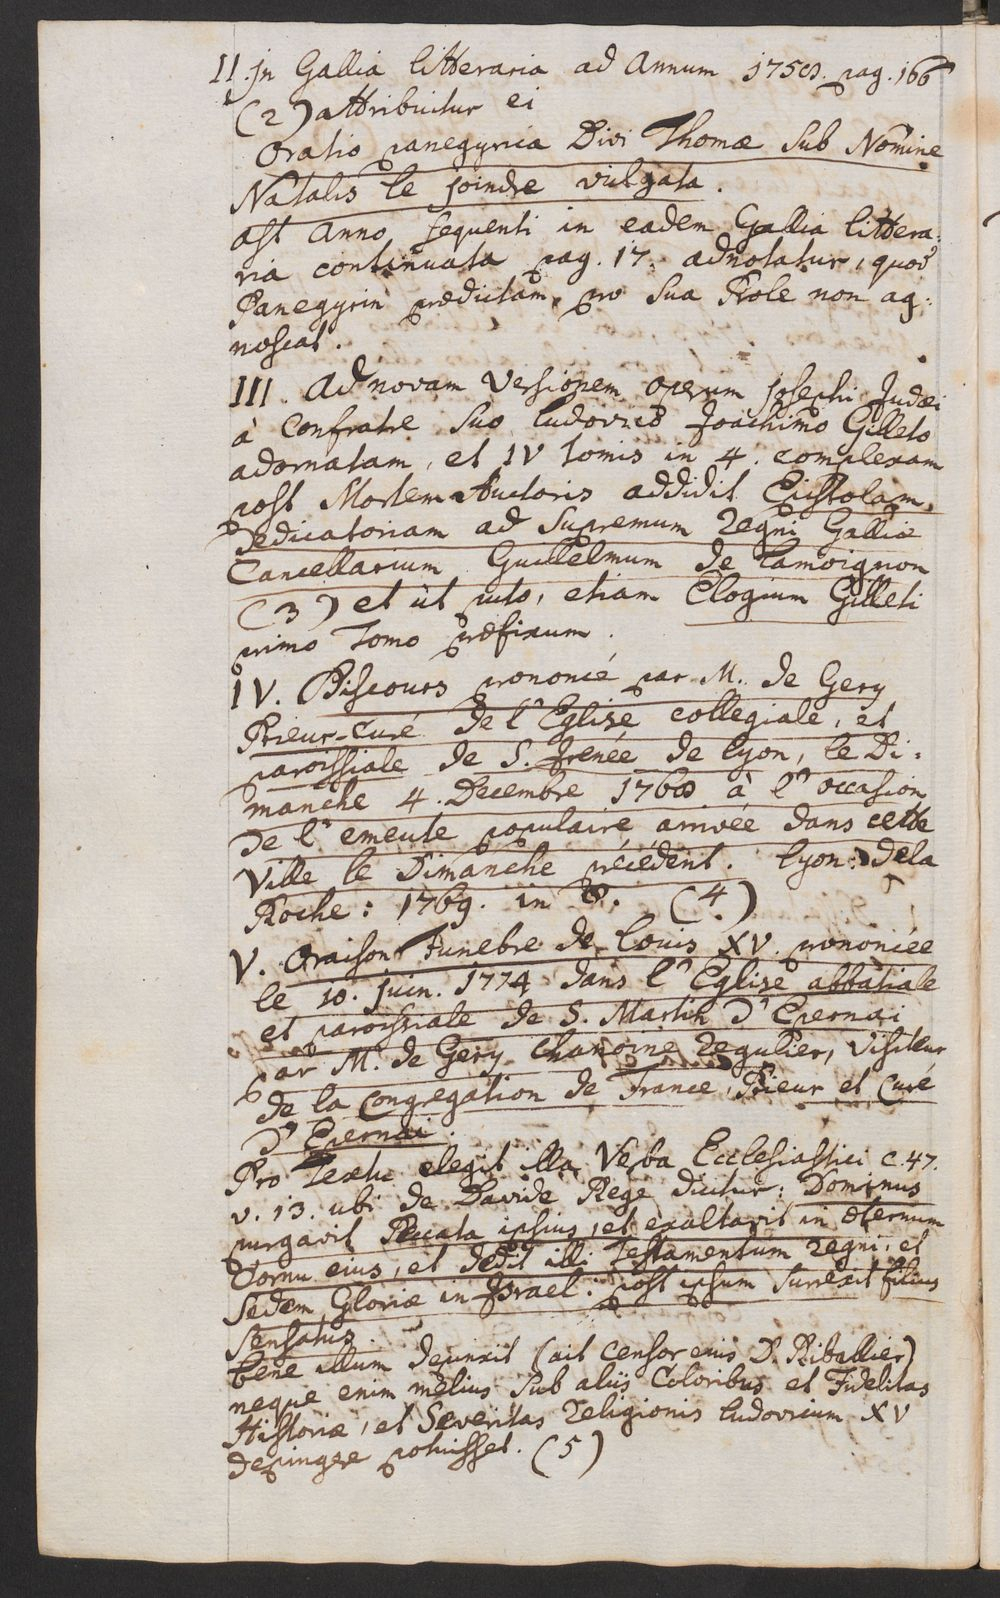 II. In Gallia litteraria ad Annum 1758. pag. 166
(2) attribuitur ei
Oratio panegyrica Divi Thomæ sub Nomine
Natalis le joindre vulgata.
ast Anno sequenti in eadem Gallia littera:
ria continuata pag. 17. adnotatur, quod
Panegyrin prædictam, pro sua Prole non ag:
noscat.
III. Ad novam Versionem operum Josephi Judæi
à Confratre suo Ludovico Joachimo Gilleto
adornatam, et IV tomis in 4. complexam
post Mortem Auctoris addidit Epistolam
dedicatoriam ad Supremum regni Galliæ
Cancellarium Guilielmum de Lamoignon
(3) et ut puto, etiam Elogium Gilleti
primo Tomo præfixum.
IV. Discours prononcé par M. de Gery
Prieur-Curé de l'Eglise collegiale, et
paroissiale de S. Irenée de Lyon, le Di:
manche 4. Decembre 1768 à l'occasion
de l'emeute populaire arrivée dans cette
Ville le Dimanche précédent. Lyon: dela
Roche: 1769. in 8. (4)
V. Oraison Funebre de Louis XV prononcée
le 10. juin. 1774 dans l'Eglise abbatiale
et paroissiale de S. Martin d'Epernai
par M. de Gery Chanoine regulier, Visiteur
de la Congregation de France, Prieur et Curé
d'Epernai.
Pro Textu elegit illa Verba Ecclesiastici c. 47.
v. 13. ubi de Davide Rege dicitur: Dominus
purgavit Peccata ipsius, et exaltavit in æternum
Cornu eius, et dedit illi Testamentum regni, et
Sedem Gloriæ in Israel: post ipsum surrexit filius
Sensatus.
bene illum depinxit (ait Censor eius D. Riballier)
neque enim melius sub aliis Coloribus et Fidelitas
Historiæ, et Severitas religionis Ludovicum XV
depingere potuisset. (5)